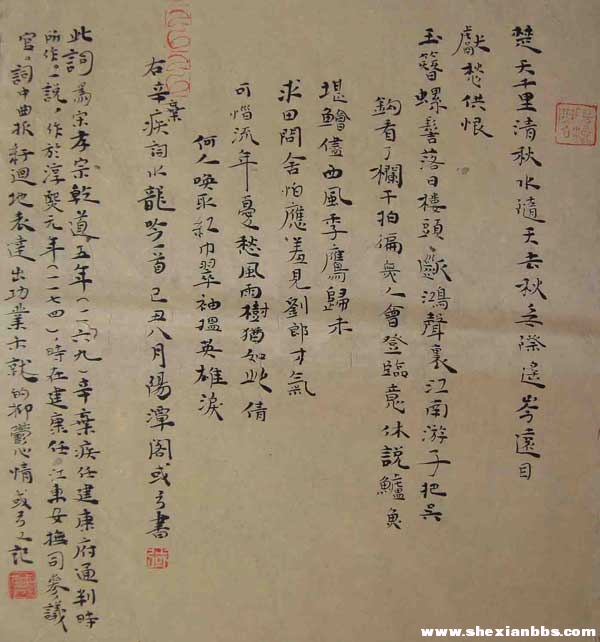 楚天千里清秋水隨天去秋無際遙岑遠目
獻愁供恨
玉簪螺髻落日樓頭斷鴻聲裏江南游子把吳
鈎看了欄干拍徧無人會登臨意休說鱸魚
堪鱠儘西風季鷹歸未
求田問舍怕應羞見劉郎才氣
可流年憂愁風雨樹猶如此倩
何人喚取紅巾翠袖搵英雄淚
右辛棄疾詞水龍吟一首己丑八月陽潭閣或弓書
此詞為宋孝宗乾道五年(一一六九)辛棄疾任建康府通判時
所作。一說,作於淳熙元年(一一七四),時在建康任江東安撫司參議
官。詞中曲折紆迴地表達出功業未就的抑鬱心情或弓又記
www.shexianbbs.com